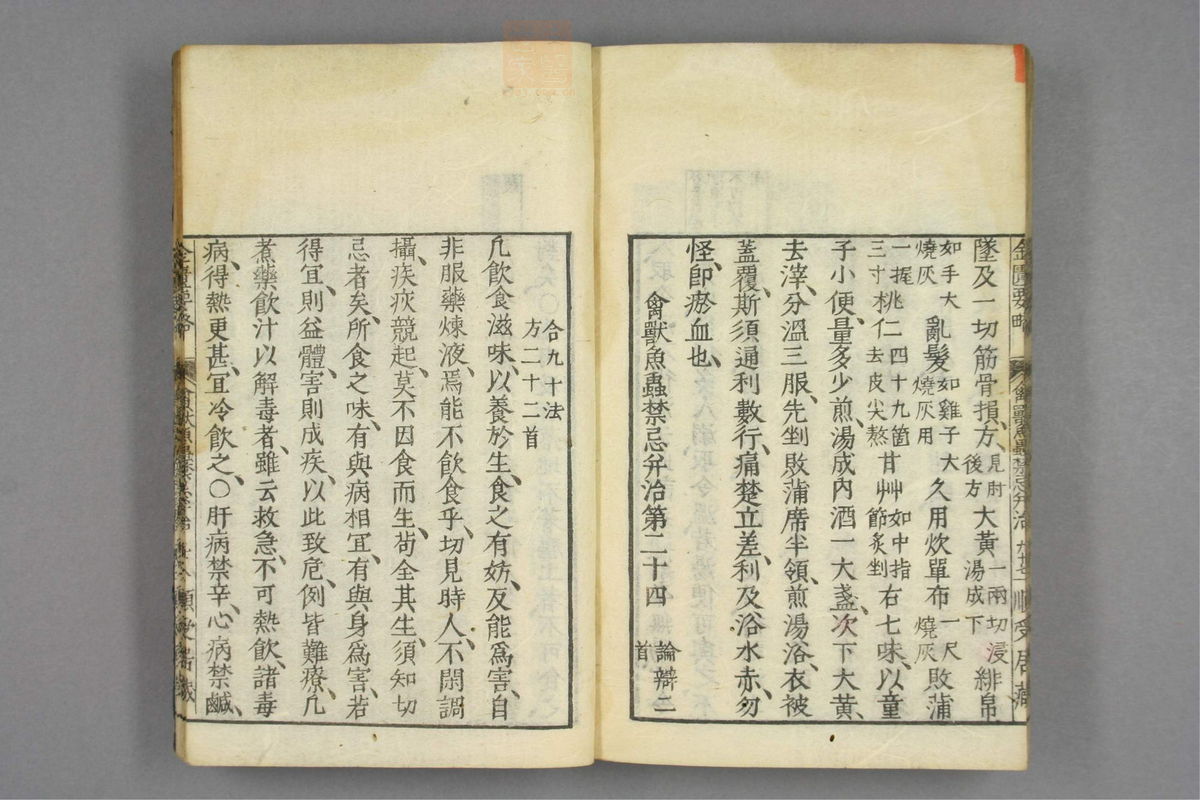 金匱要略 禽獸魚蟲禁忌并治 順受居藏
墜及一切筋骨損方、見肘後方大黃一兩切浸湯成下緋帛
如手大燒灰亂髮如雞子大燒灰用久用炊單布一尺燒灰敗蒲
一握三寸桃仁四十九箇去皮尖熬甘艸如中指節炙剉右七味、以童
子小便、量多少煎湯成內酒一大盞、次下大黃、
去滓、分溫三服、先剉敗蒲席半領、煎湯浴、衣被
蓋覆、斯須通利數行、痛楚立差、利及浴水赤、勿
怪、卽瘀血也、
禽獸魚蟲禁忌并治第二十四 論辯二首
合九十法方二十二首
凡飲食滋味、以養於生、食之有妨、反能爲害、自
非服藥煉液、焉能不飲食乎、切見時人、不閑調
攝、疾疢競起、莫不因食而生、茍全其生、須知切
忌者矣、所食之味、有與病相宜、有與身爲害、若
得宜、則益體、害則成疾、以此致危、例皆難療、凡
煮藥飲汁以解毒者、雖云救急、不可熱飲、諸毒
病、得熱更甚、宜冷飲之、〇肝病禁辛、心病禁鹹、
金匱要略 順受居藏